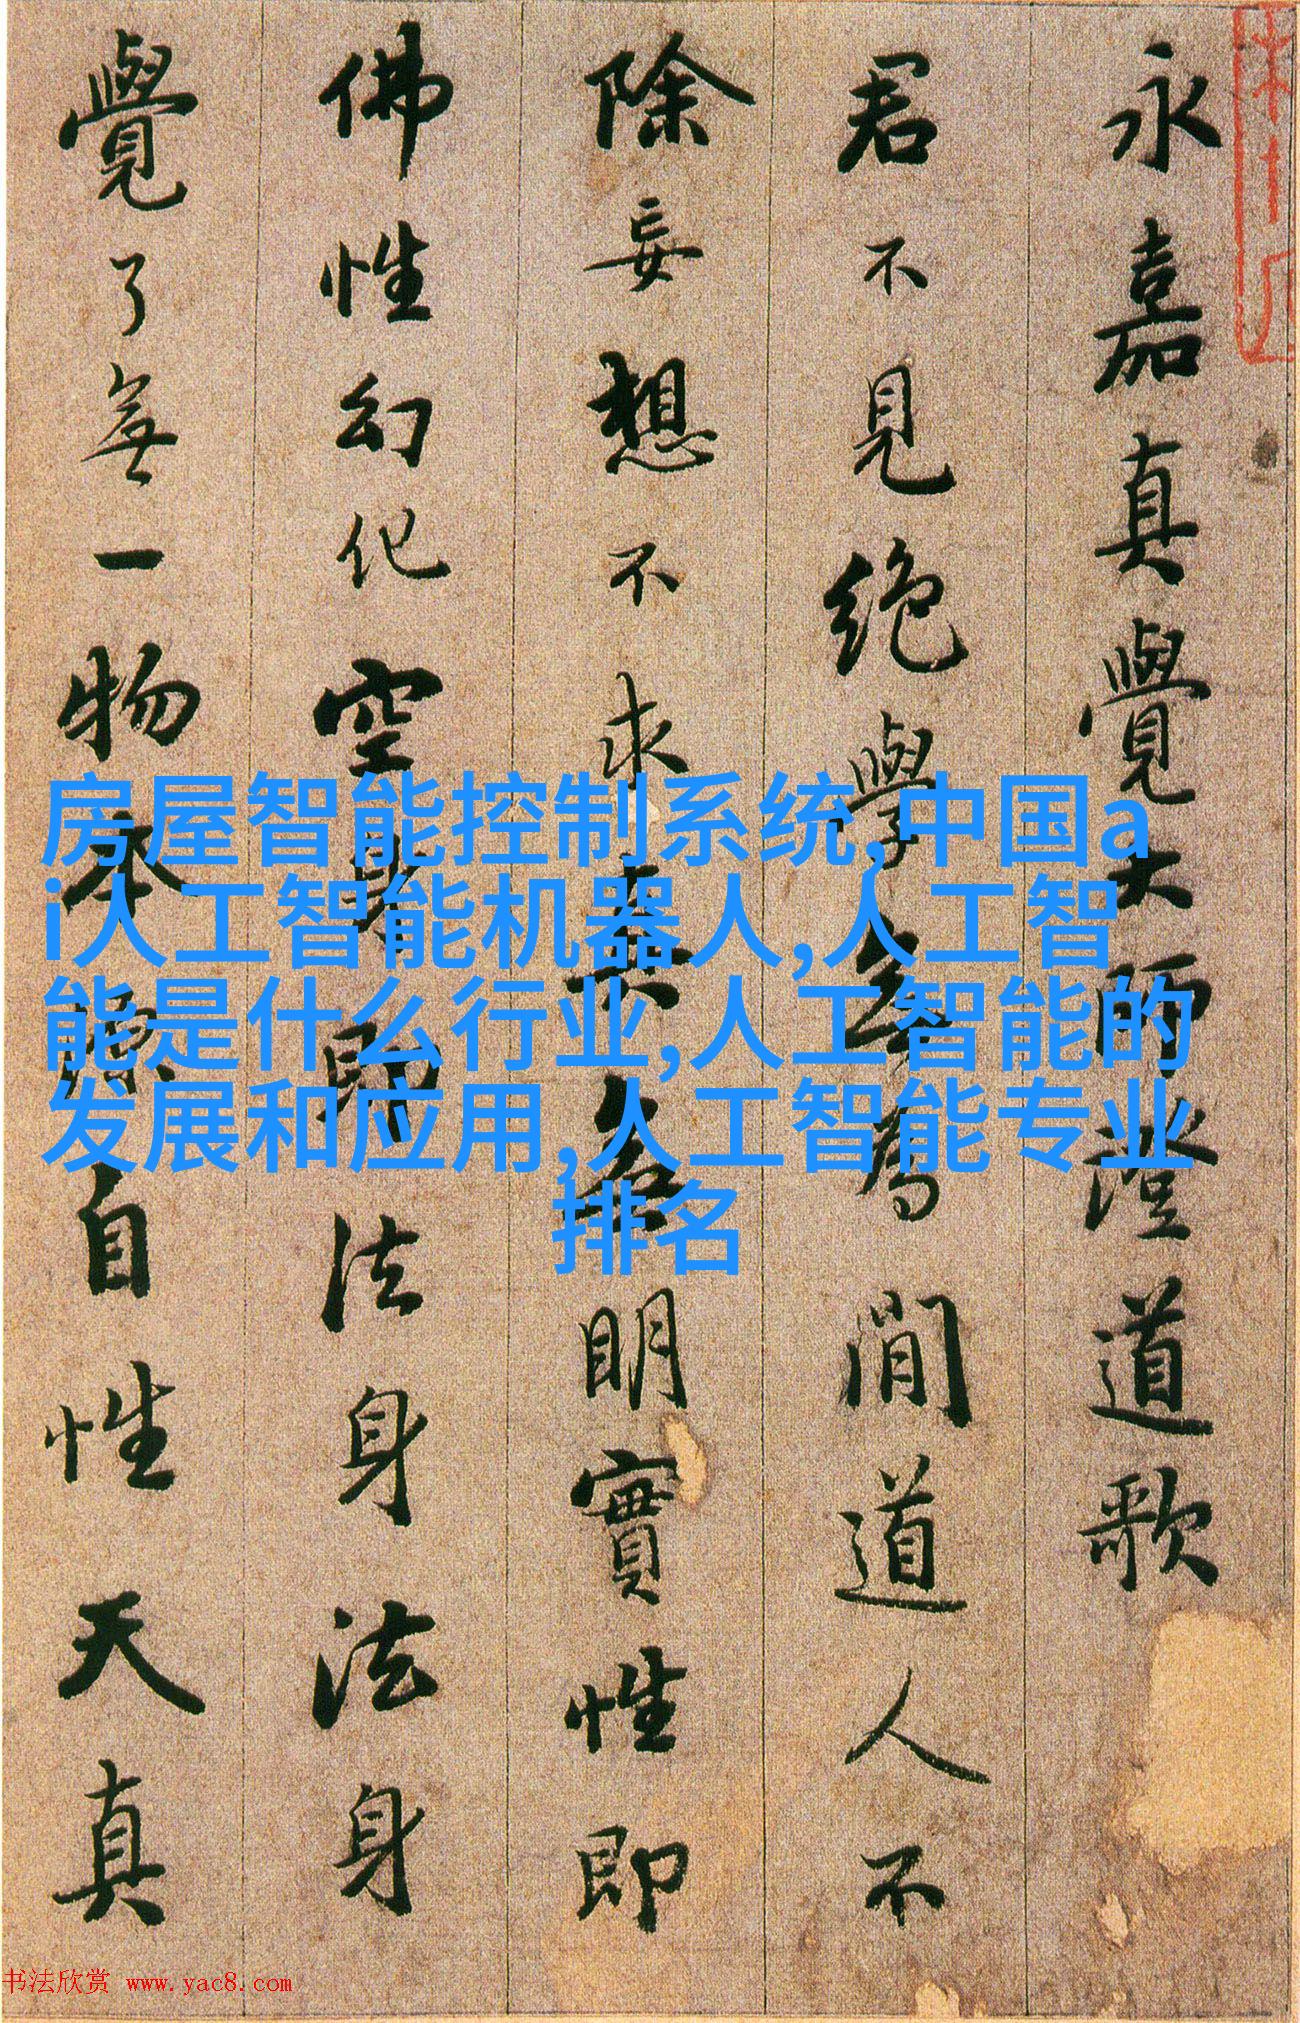 永嘉真覺大師澄道歌
君不見絶學無為閒道人不
除妄想不求真不明實性即
佛性幻化空身即法身法身
覺了無一物本源自性天真
房屋智能控制系统,中国a
i人工智能机器人,人工智
能是什么行业,人工智能的
发展和应用,人工智能专业
排名
书法欣赏 www.yac8.com